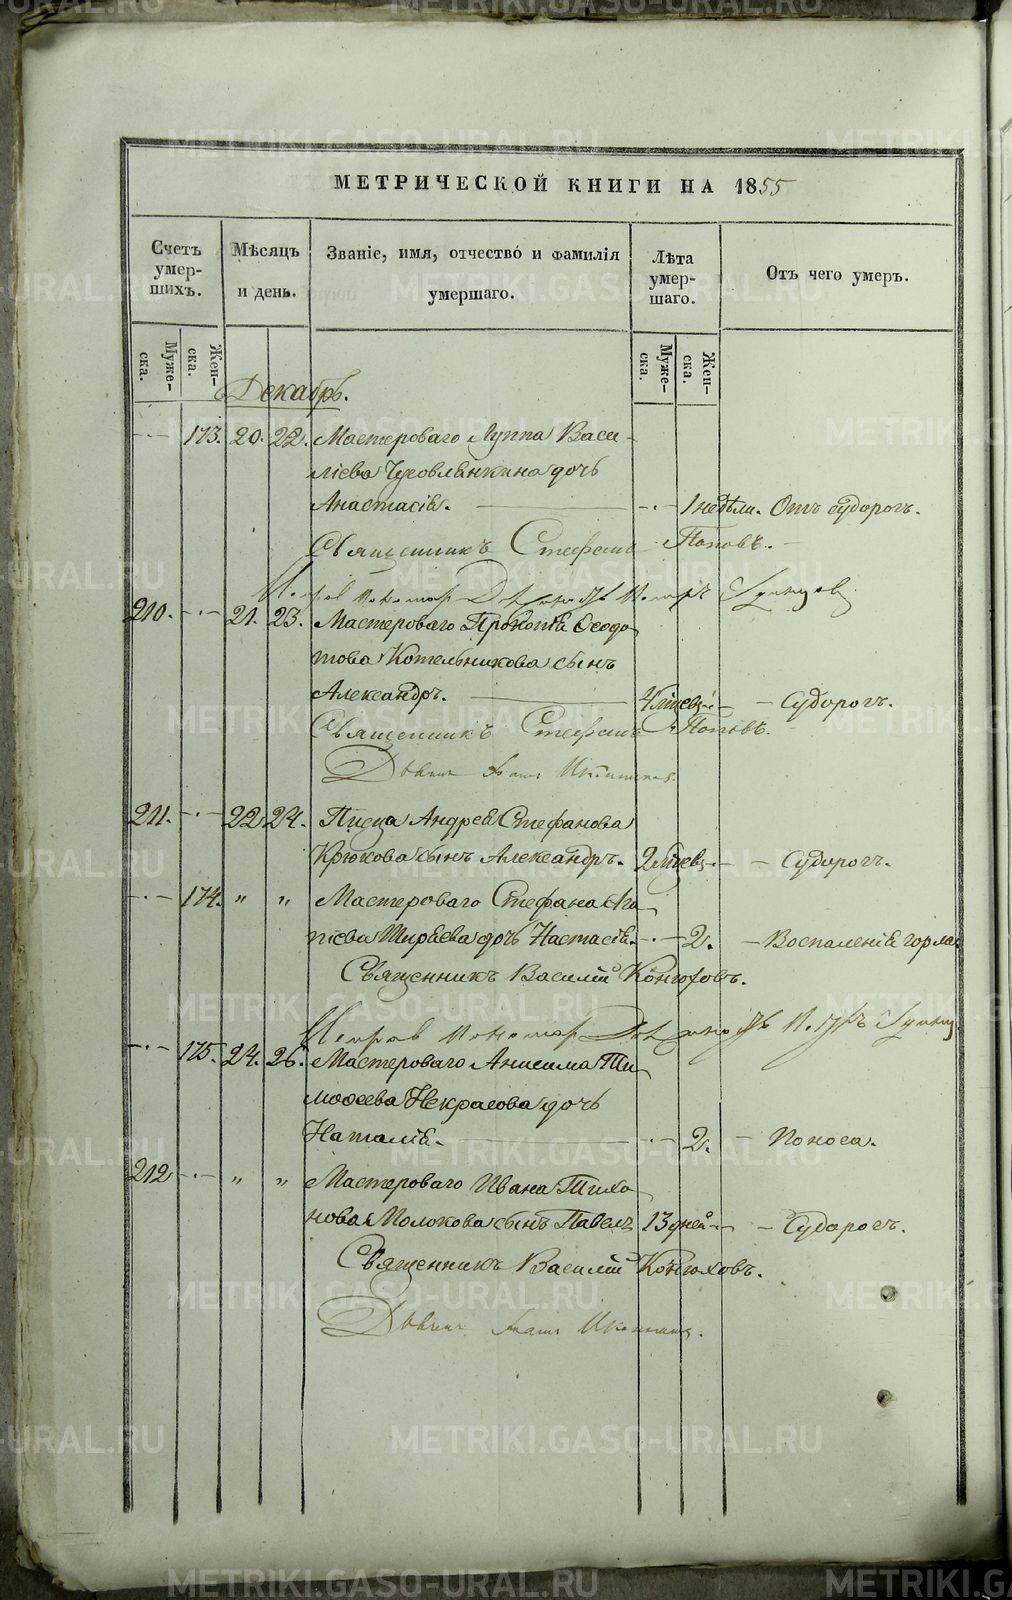 МЕТРИЧЕСКОЙ КНИГИ НА 1855
Счетъ умер-шихъ.
Мѣсяцъ и день.
Званіе, имя, отчество и фамилія умершаго.
Лѣта умер-шаго.
Отъ чего умеръ.
Муже-ска.
Жен-ска.
Муже-ска.
Жен-ска.
Декабрь.
173. 20. 22. Мастероваго Луппа Васи-
лiева дочь
Анастасія. 1 недѣли. Отъ судорогъ.
Священникъ Стефанъ Поповъ.
210. 21. 23. Мастероваго Прокопія Ѳеодо-
това Котельникова сынъ
Александръ. Судорогъ.
Священникъ Стефанъ Поповъ.
211. 22. 24. Писца Андрея Стефанова
Крюкова сынъ Александръ. Судорогъ.
174. " " Мастероваго Стефана
Ширяева дочь Настасія. 2. Воспаленія горла.
Священникъ Василій Конюховъ.
175. 24. 26. Мастероваго Анисима Ти-
моѳеева Некрасова дочь
Наталія. 2. Поноса.
212 " " Мастероваго Ивана Тихо-
нова Молокова сынъ Павелъ 13 дней Судорогъ.
Священникъ Василій Конюховъ.
METRIKI.GASO-URAL.RU